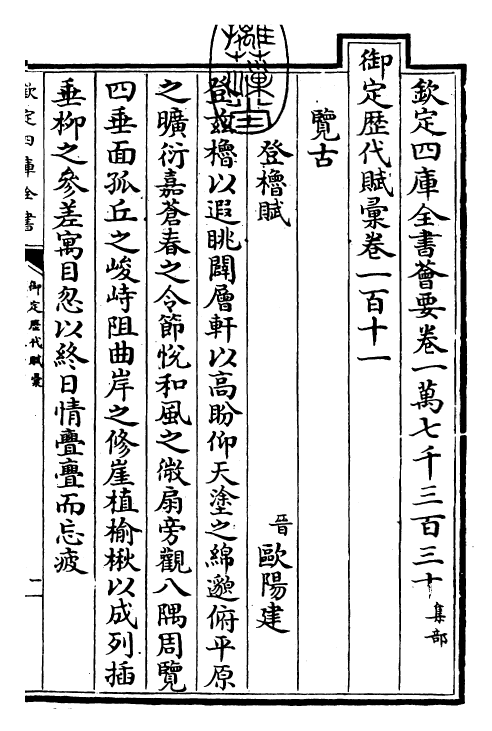 欽定四庫全書薈要卷一萬七千三百三十集部
御定歴代賦彙卷一百十一
覽古
登櫓賦
晉歐陽建
登茲櫓以遐眺闢層軒以高盼仰天塗之綿邈俯平原
之曠衍嘉蒼春之令節悅和風之微扇旁觀八隅周覽
四垂面孤丘之峻峙阻曲岸之修崖植榆楸以成列插
垂柳之參差寓目忽以終日情亹亹而忘疲
欽定四庫全書
御定歴代賦彙